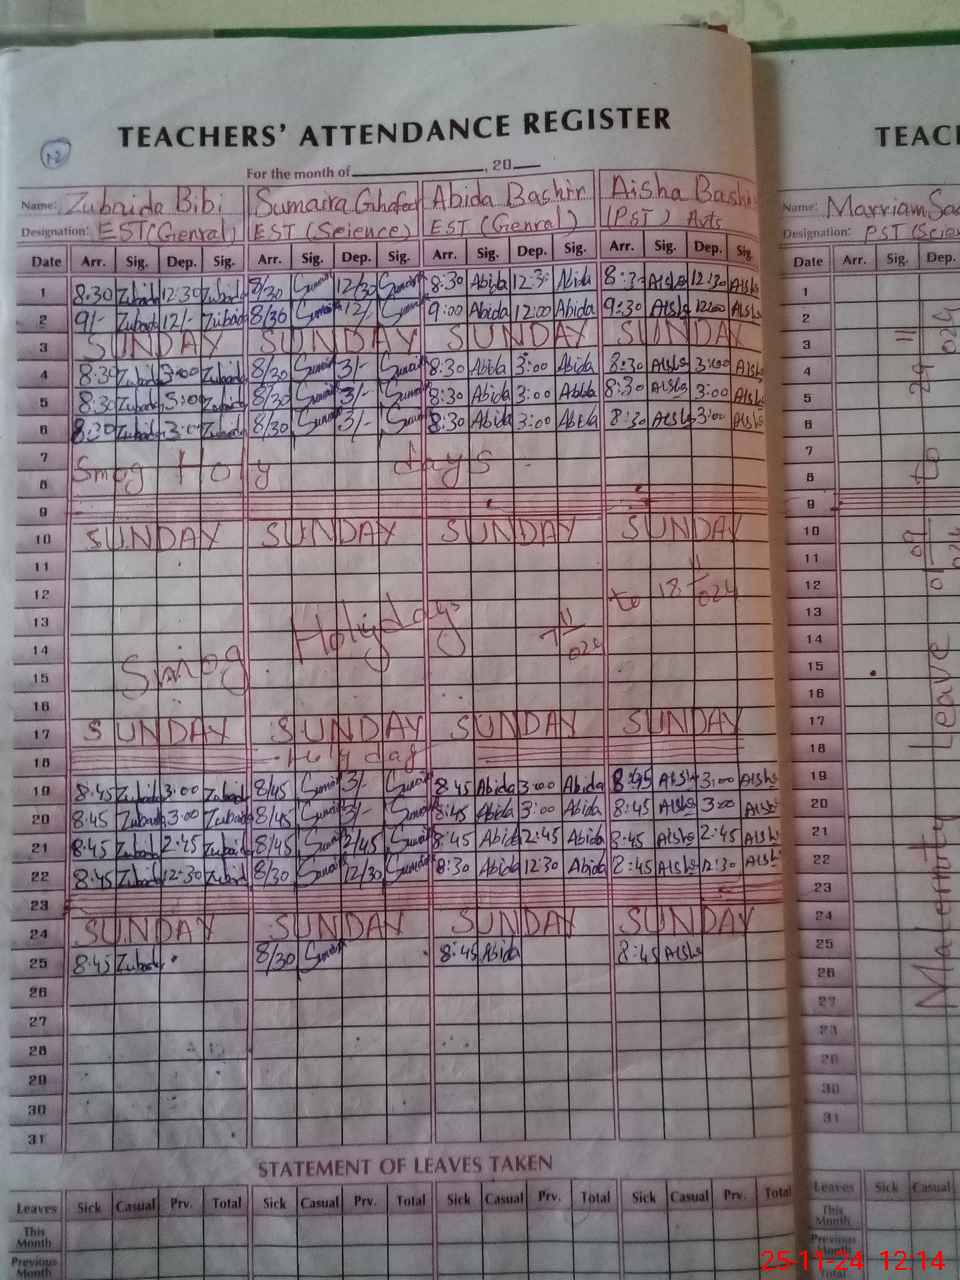 TEACHERS' ATTENDANCE REGISTER
12
For the month of ________, 20__
Name: Zubaida Bibi Sumaira Ghafoor Abida Bashir Aisha Bashir
Designation: EST (Genral) EST (Science) EST (Genral) (PST) Arts
Date Arr. Sig. Dep. Sig. Arr. Sig. Dep. Sig. Arr. Sig. Dep. Sig. Arr. Sig. Dep. Sig.
1 8:30 Zubaid 12:30 Zubaid 8/30 12/30 8:30 Abida 12:30 Abida 8:30 Aisha 12:30 Aisha
2 9/- Zubad 12/- Zubad 8/30 12/- 9:00 Abida 12:00 Abida 9:30 Aisha 12:00 Aisha
3 SUNDAY SUNDAY SUNDAY SUNDAY
4 8:30 3:00 8/30 3/- 8:30 Abida 3:00 Abida 8:30 Aisha 3:00 Aisha
5 8:30 3:00 8/30 3/- 8:30 Abida 3:00 Abida 8:30 Aisha 3:00 Aisha
6 8:30 3:00 8/30 3/- 8:30 Abida 3:00 Abida 8:30 Aisha 3:00 Aisha
7
Smog Holy days
8
9
10 SUNDAY SUNDAY SUNDAY SUNDAY
11
12 to 18 11/024
13
Smog Holiydays 7 11/024
14
15
16
17 SUNDAY SUNDAY SUNDAY SUNDAY
18 Holy day
19 8:45 Zubaid 3:00 Zubaid 8/45 3/- 8:45 Abida 3:00 Abida 8:45 Aisha 3:00 Aisha
20 8:45 Zubaid 3:00 Zubaid 8/45 3/- 8:45 Abida 3:00 Abida 8:45 Aisha 3:00 Aisha
21 8:45 Zubaid 2:45 Zubaid 8/45 2/45 8:45 Abida 2:45 Abida 8:45 Aisha 2:45 Aisha
22 8:45 Zubaid 12:30 Zubaid 8/30 12/30 8:30 Abida 12:30 Abida 8:45 Aisha 12:30 Aisha
23
24 SUNDAY SUNDAY SUNDAY SUNDAY
25 8:45 Zubaid 8/30 8:45 Abida 8:45 Aisha
26
27
28
29
30
31
STATEMENT OF LEAVES TAKEN
Leaves Sick Casual Prv. Total Sick Casual Prv. Total Sick Casual Prv. Total Sick Casual Prv. Total
This Month
Previous Month
TEAC
Name: Marriam
Designation: PST (Scien
Date Arr. Sig. Dep.
1
2
3
4
5
6
7
8
9
10
11
12
13
14
15
16
17
18
19
20
21
22
23
24
25
26
27
28
29
30
31
Maternity Leave 01 09/024 to 29 11/024
Leaves Sick Casual
This Month
Previous Month
Total
25-11-24 12:14